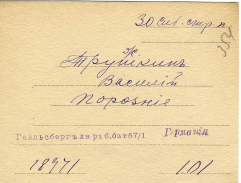 30 Сиб. стр. п.
354
Трушкинъ
Василій
Порозніе
Гейльсбергъ кв рт б. бат 67/1 Германія
18971 101